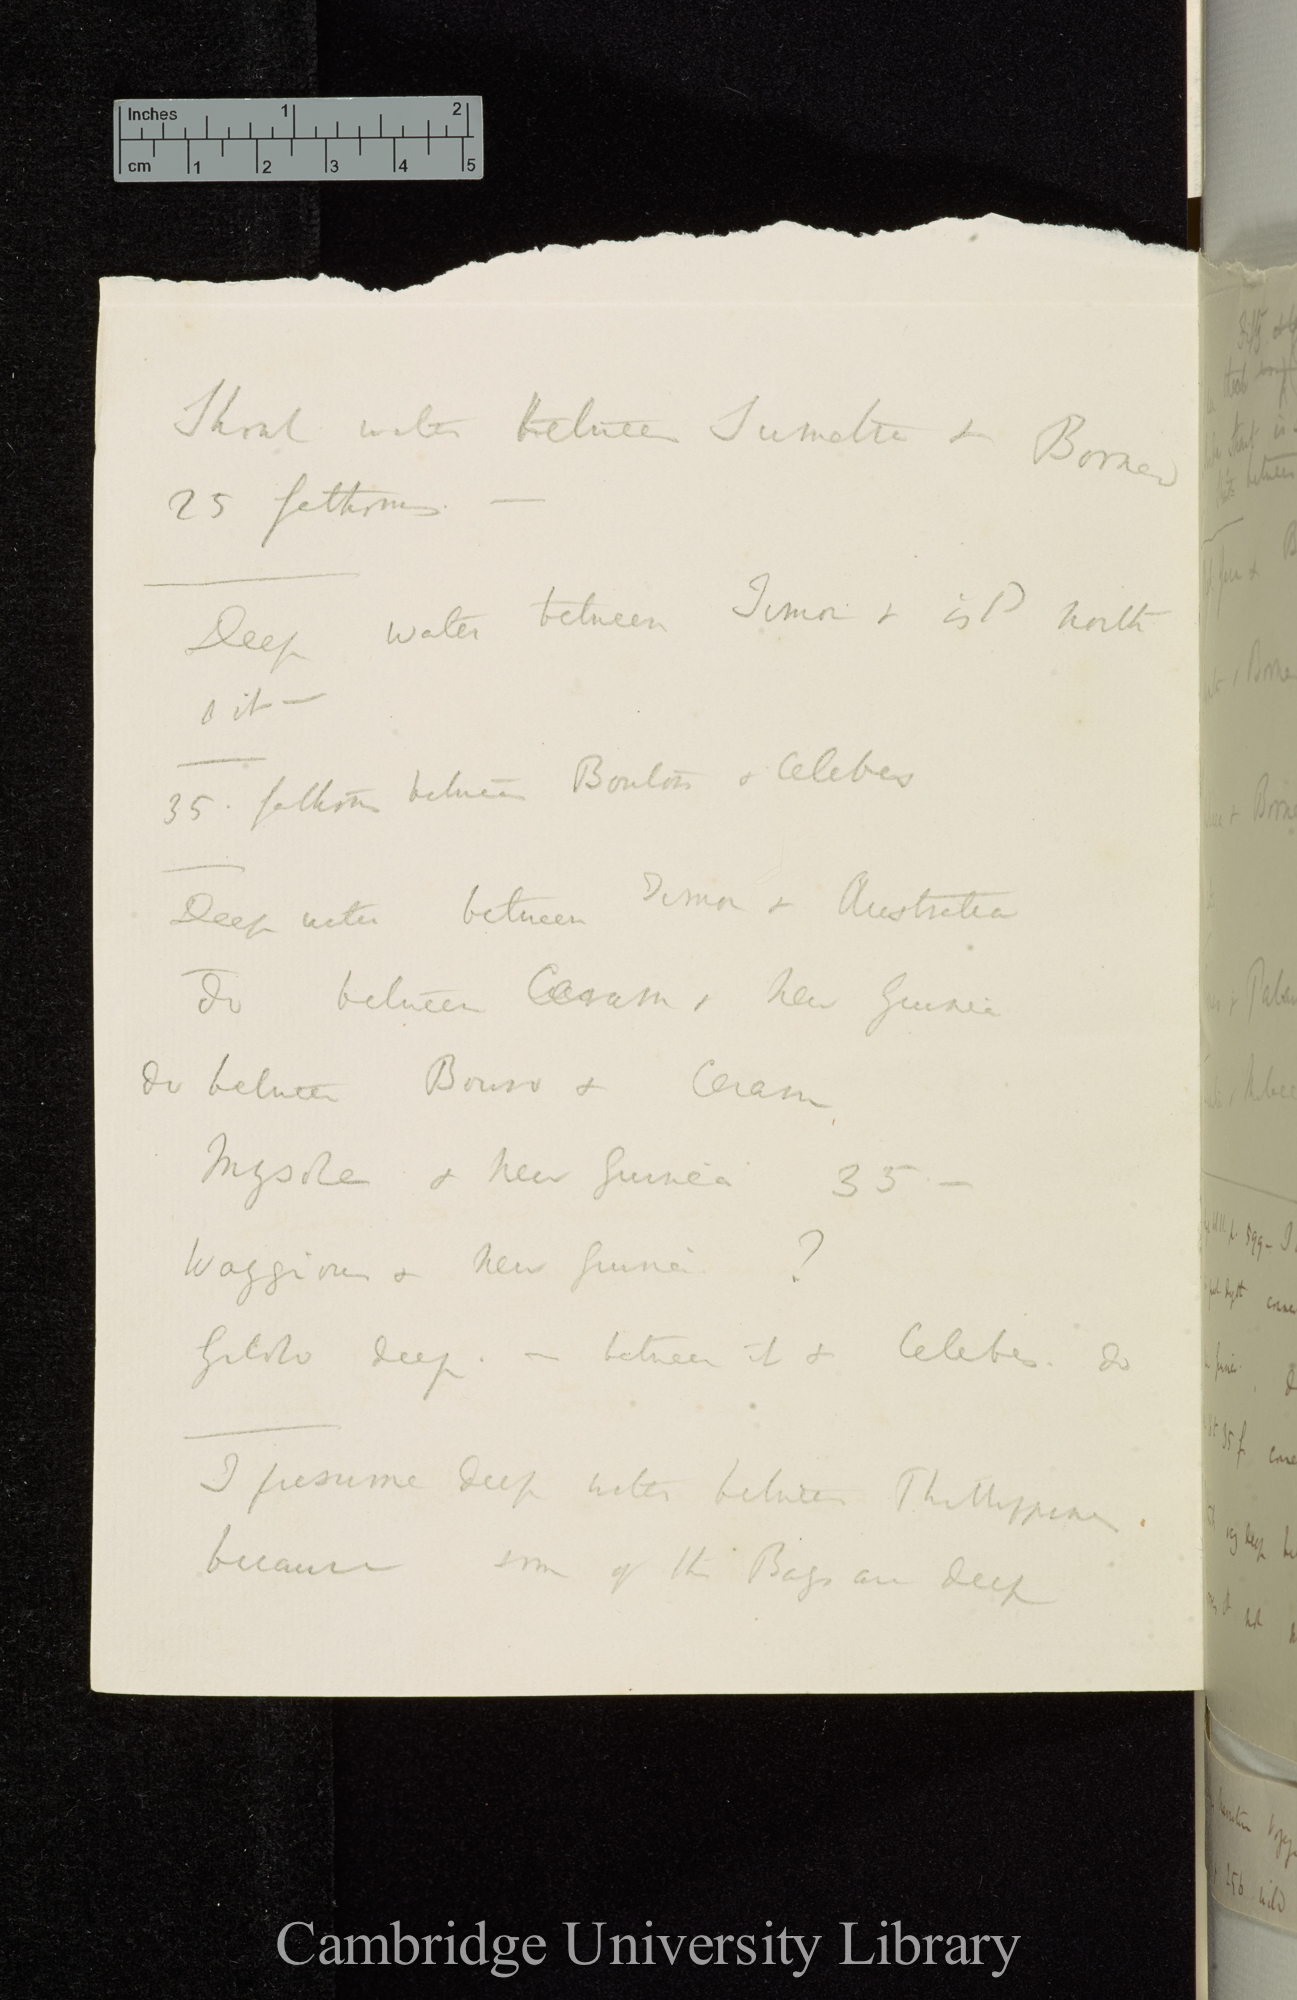 Inches 1 2
cm 1 2 3 4 5
Shoal water between Sumatra & Borneo
25 fathoms. —
Deep water between Timor & isd north
o it —
35. fathoms between Bouton & Celebes
Deep water between Timor & Australia
Do between Ceram & New Guinea
Do between Bouro & Ceram
Mysole & New Guinea 35 —
Waggiou & New Guinea ?
Gilolo deep. — between it & Celebes. do
I presume deep water between Phillippines.
because some of the Bays are deep
Cambridge University Library